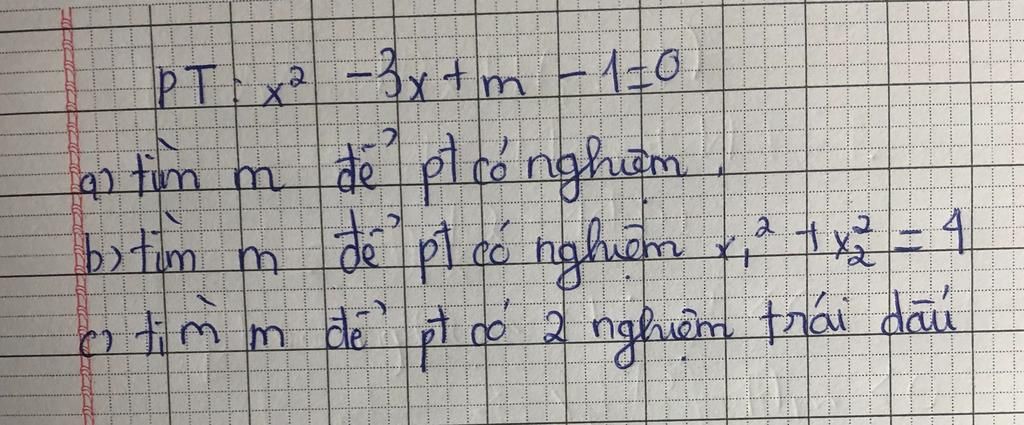 PT: x² - 3x + m - 1 = 0
a) tìm m để pt có nghiệm.
b) tìm m để pt có nghiệm x₁² + x₂² = 4
c) tìm m để pt có 2 nghiệm trái dấu